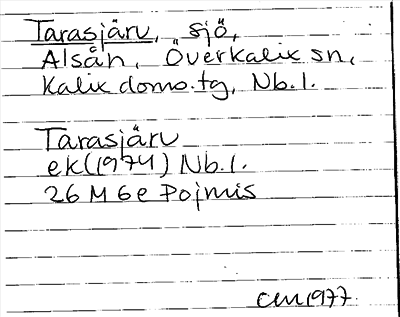 Tarasjärv, sjö,
Alsån, Överkalix sn,
Kalix doms.tg, Nb.l.
Tarasjärv
ek(1974) Nb.l.
26 M 6e Pojmis
CM 1977